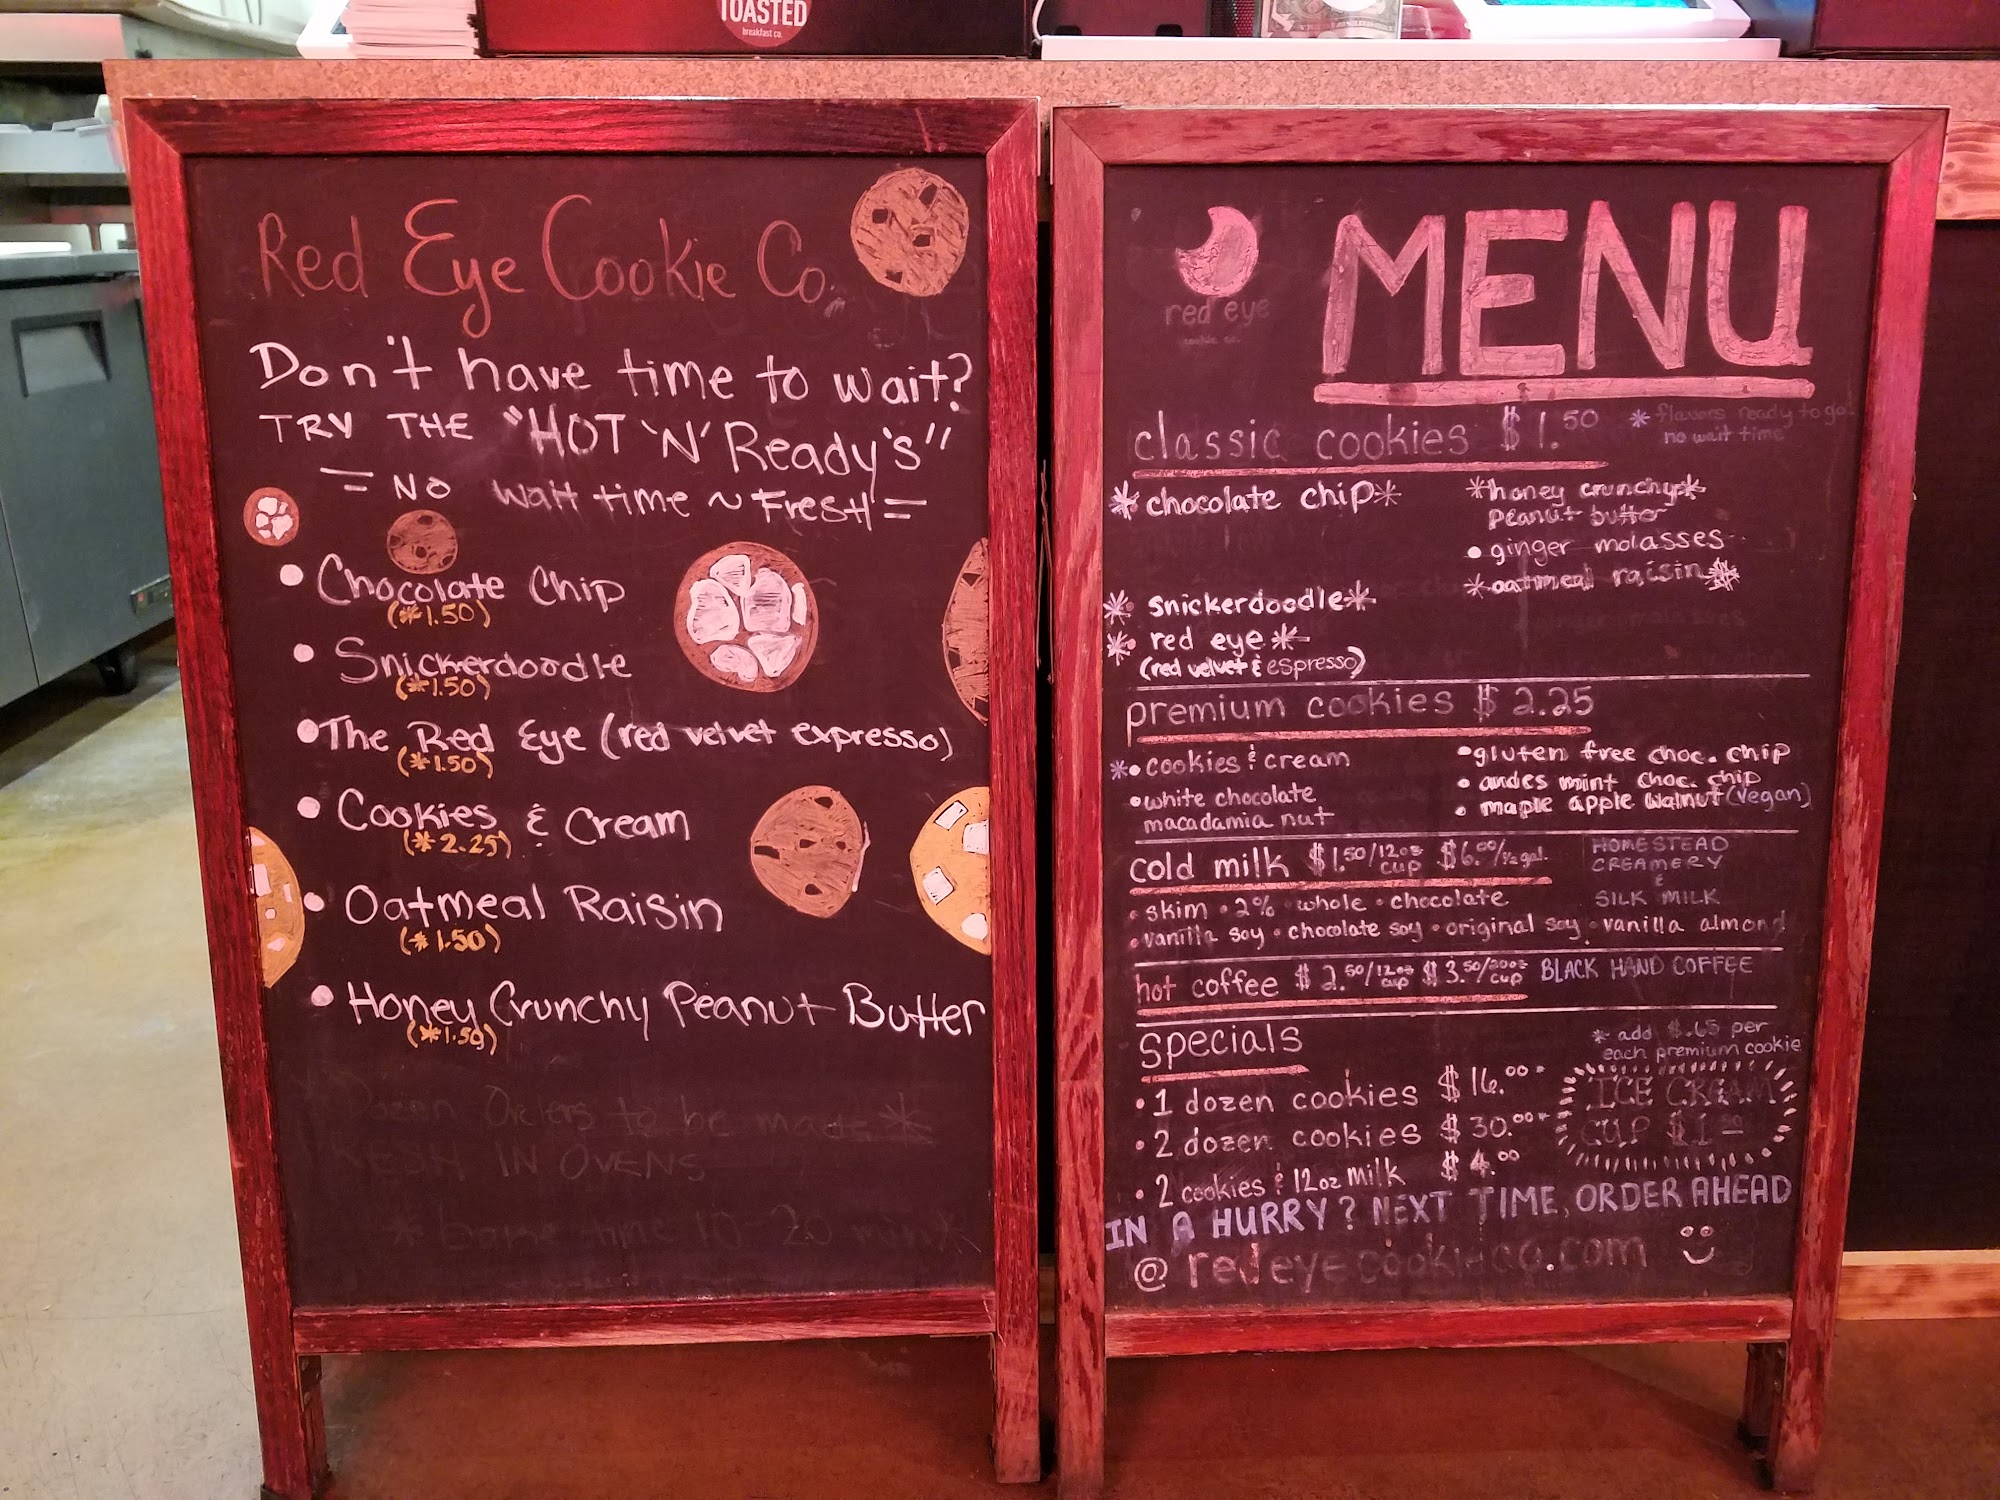 TOASTED
breakfast co.
Red Eye Cookie Co.
Don't have time to wait?
TRY THE "HOT 'N' Ready's"
= NO wait time ~ FRESH =
• Chocolate Chip
(*1.50)
• Snickerdoodle
(*1.50)
• The Red Eye (red velvet expresso)
(*1.50)
• Cookies & Cream
(*2.25)
• Oatmeal Raisin
(*1.50)
• Honey Crunchy Peanut Butter
(*1.50)
Dozen Orders to be made *
FRESH IN OVENS
red eye
cookie co.
MENU
classic cookies $1.50
* flavors ready to go!
no wait time
* chocolate chip *
* snickerdoodle *
* red eye *
(red velvet & espresso)
* honey crunchy *
peanut butter
• ginger molasses
* oatmeal raisin *
premium cookies $2.25
* • cookies & cream
• white chocolate
macadamia nut
• gluten free choc. chip
• andes mint choc. chip
• maple apple walnut (vegan)
cold milk $1.50/12oz cup $6.00/½ gal.
HOMESTEAD
CREAMERY
&
SILK MILK
• skim • 2% • whole • chocolate
• vanilla soy • chocolate soy • original soy • vanilla almond
hot coffee $2.50/12oz cup $3.50/20oz cup BLACK HAND COFFEE
specials
* add $.65 per
each premium cookie
• 1 dozen cookies $16.00 *
• 2 dozen cookies $30.00 *
• 2 cookies & 12oz milk $4.00
ICE CREAM
CUP $1.50
IN A HURRY? NEXT TIME, ORDER AHEAD
@ redeyecookieco.com